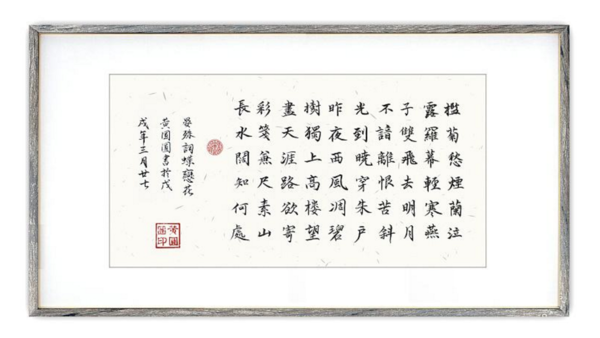 槛菊愁煙蘭泣
露羅幕輕寒燕
子雙飛去明月
不諳離恨苦斜
光到曉穿朱戶
昨夜西風凋碧
樹獨上高楼望
盡天涯路欲寄
彩箋兼尺素山
長水闊知何處
晏殊詞蝶戀花
黄圆圆書於戊
戌年三月廿七